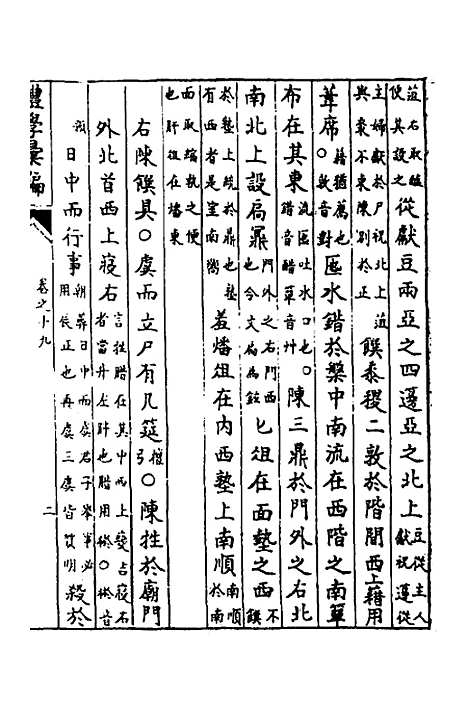 菹右取醢
使其設之從獻豆兩亞之四籩亞之北上豆從主人
獻祝籩從
主婦獻於尸祝北上菹
與棗不東陳別於正饌黍稷二敦於階間西上藉用
葦席○藉猶薦也
敦音對匜水錯於槃中南流在西階之南簞
布在其東流匜吐水口也○
錯音醋簞音丹陳三鼎於門外之右北
南北上設扃鼏門外之右門西
也今文扃為鉉匕俎在西塾之西不
饌
於塾上統於鼎也塾
有西者是室南鄉羞燔俎在內西塾上南順南順
於南
面取縮執之便
也肝俎在燔東
右陳饌具○虞而立尸有几筵檀弓○陳牲於廟門
外北首西上寢右言牲腊在其中西上變吉寢右
者當升左胖也腊用棜○棜音
日中而行事朝葬日中而虞君子舉事必
用辰正也再虞三虞皆質明殺於
禮學彙編
卷之十九
二